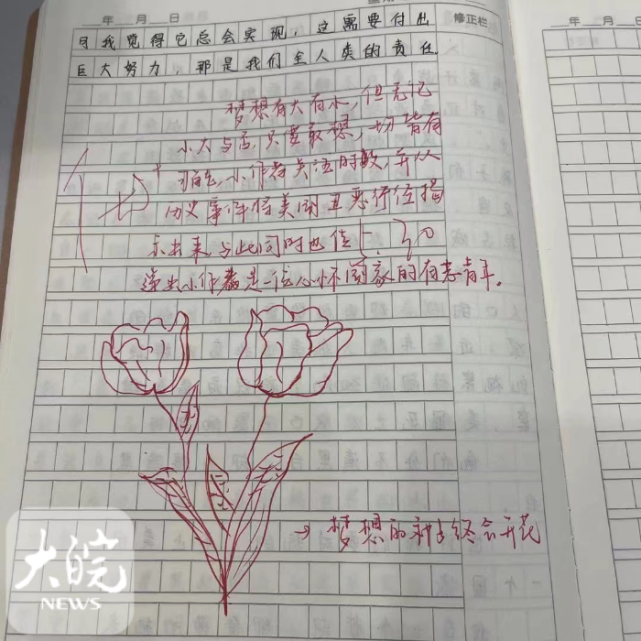 年 月 日
修正栏
可我觉得它总会实现，这需要付出
巨大努力，那是我们全人类的责任
梦想有大有小，但无论
小大与否，只要敢想，一切皆有
可能，小作者关注时政，并从
历史事件将美国丑恶行径揭
示出来，与此同时也
小作者是一位心怀国家的有志青年。
→ 梦想的种子终会开花
大皖
NEWS